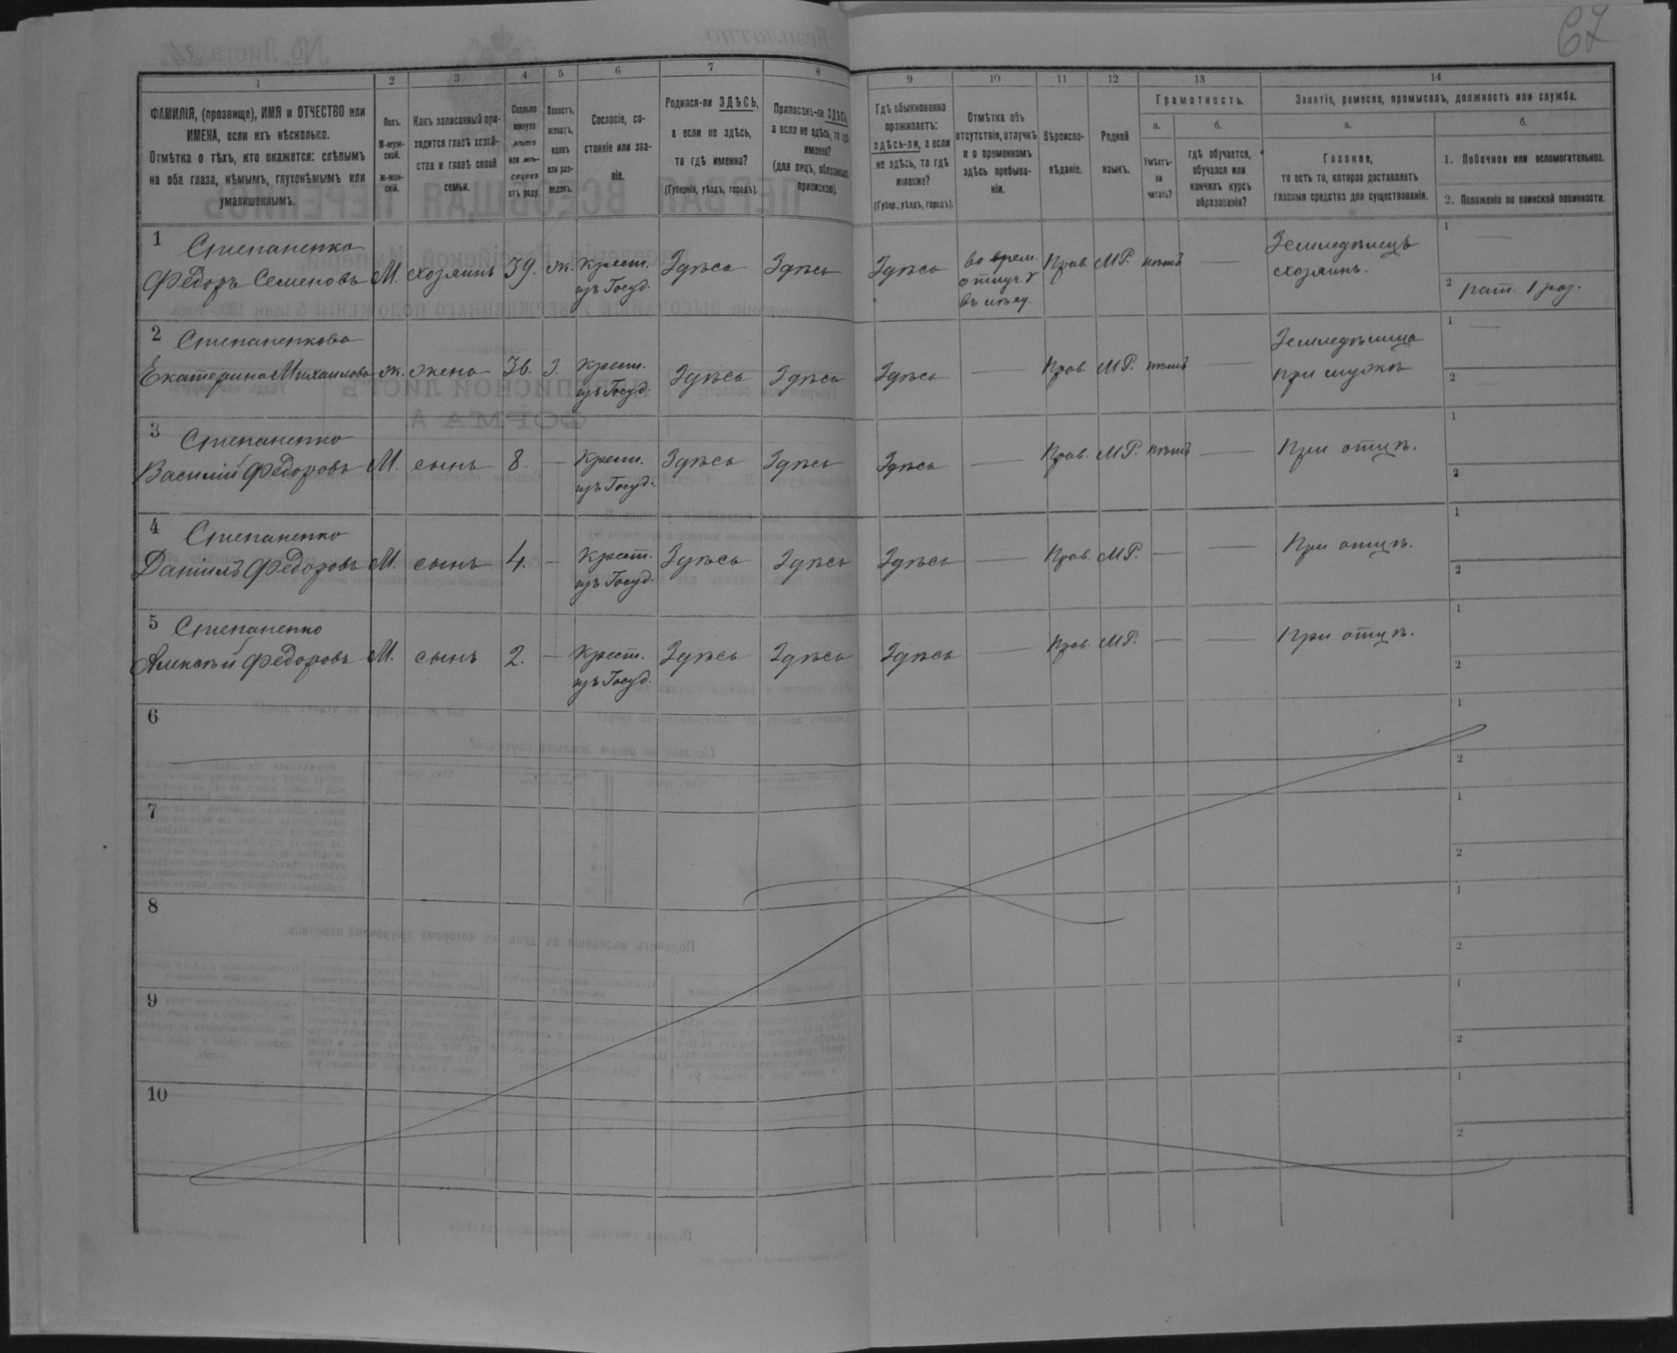 67
1
2
3
4
5
6
7
8
9
10
11
12
13
14
ФАМИЛІЯ, (прозвище), ИМЯ и ОТЧЕСТВО или
ИМЕНА, если ихъ нѣсколько.
Отмѣтка о тѣхъ, кто окажется: слѣпымъ
на оба глаза, нѣмымъ, глухонѣмымъ или
умалишеннымъ.
Полъ.
М-муж-
ской.
Ж-жен-
скій.
Какъ записанный при-
ходится главѣ хозяй-
ства и главѣ своей
семьи.
Сколько
минуло
лѣтъ
или мѣ-
сяцевъ
отъ роду.
Холостъ,
женатъ,
вдовъ
или раз-
веденъ.
Сословіе, со-
стояніе или зва-
ніе.
Родился-ли ЗДѢСЬ,
а если не здѣсь,
то гдѣ именно?
(Губернія, уѣздъ, городъ).
Приписанъ-ли ЗДѢСЬ,
а если не здѣсь, то гдѣ
именно?
(для лицъ, обязанныхъ
припискою).
Гдѣ обыкновенно
проживаетъ:
здѣсь-ли, а если
не здѣсь, то гдѣ
именно?
(Губер., уѣздъ, городъ).
Отмѣтка объ
отсутствіи, отлучкѣ
и о временномъ
здѣсь пребыва-
ніи.
Вѣроиспо-
вѣданіе.
Родной
языкъ.
Грамотность.
а.
Умѣетъ-
ли
читать?
б.
гдѣ обучается,
обучался или
кончилъ курсъ
образованія?
Занятіе, ремесло, промыселъ, должность или служба.
а.
Главное,
то есть то, которое доставляетъ
главныя средства для существованія.
б.
1. Побочное или вспомогательное.
2. Положеніе по воинской повинности.
1 Степаненко
Федоръ Семеновъ М. хозяинъ 39. ж. Крест. изъ Госуд. Здѣсь Здѣсь Здѣсь во врем. отлуч. Прав. М.Р. нѣтъ — Земледѣлецъ хозяинъ. 1 —
2 рат. 1 раз.
2 Степаненкова
Екатерина Михаилова ж. жена 36. з. Крест. изъ Госуд. Здѣсь Здѣсь Здѣсь — Прав. М.Р. нѣтъ — при мужѣ 1 —
2 —
3 Степаненко
Василій Федоровъ М. сынъ 8. — Крест. изъ Госуд. Здѣсь Здѣсь Здѣсь — Прав. М.Р. нѣтъ — При отцѣ. 1
2
4 Степаненко
Даніилъ Федоровъ М. сынъ 4. — Крест. изъ Госуд. Здѣсь Здѣсь Здѣсь — Прав. М.Р. — — При отцѣ. 1
2
5 Степаненко
Алексѣй Федоровъ М. сынъ 2. — Крест. изъ Госуд. Здѣсь Здѣсь Здѣсь — Прав. М.Р. — — При отцѣ. 1
2
6 1
2
7 1
2
8 1
2
9 1
2
10 1
2